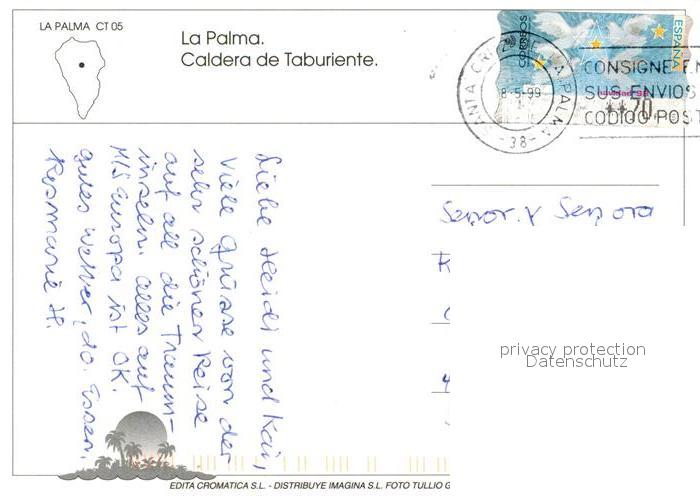 LA PALMA CT 05
La Palma.
Caldera de Taburiente.
CORREOS
ESPAÑA
navidad 98
**70
SANTA CRUZ
PALMA
8-5-99
-38-
CONSIGNE EN
SUS ENVIOS
CODIGO POST
Liebe Heidi und Kai,
Viele Grüsse von der
sehr schönen Reise
auf all die Traum-
inseln. Alles auf
M/S Europa ist OK.
gutes Wetter, do. Essen.
Rosmarie H.
Senor. y Senora
privacy protection
Datenschutz
EDITA CROMATICA S.L. - DISTRIBUYE IMAGINA S.L. FOTO TULLIO G